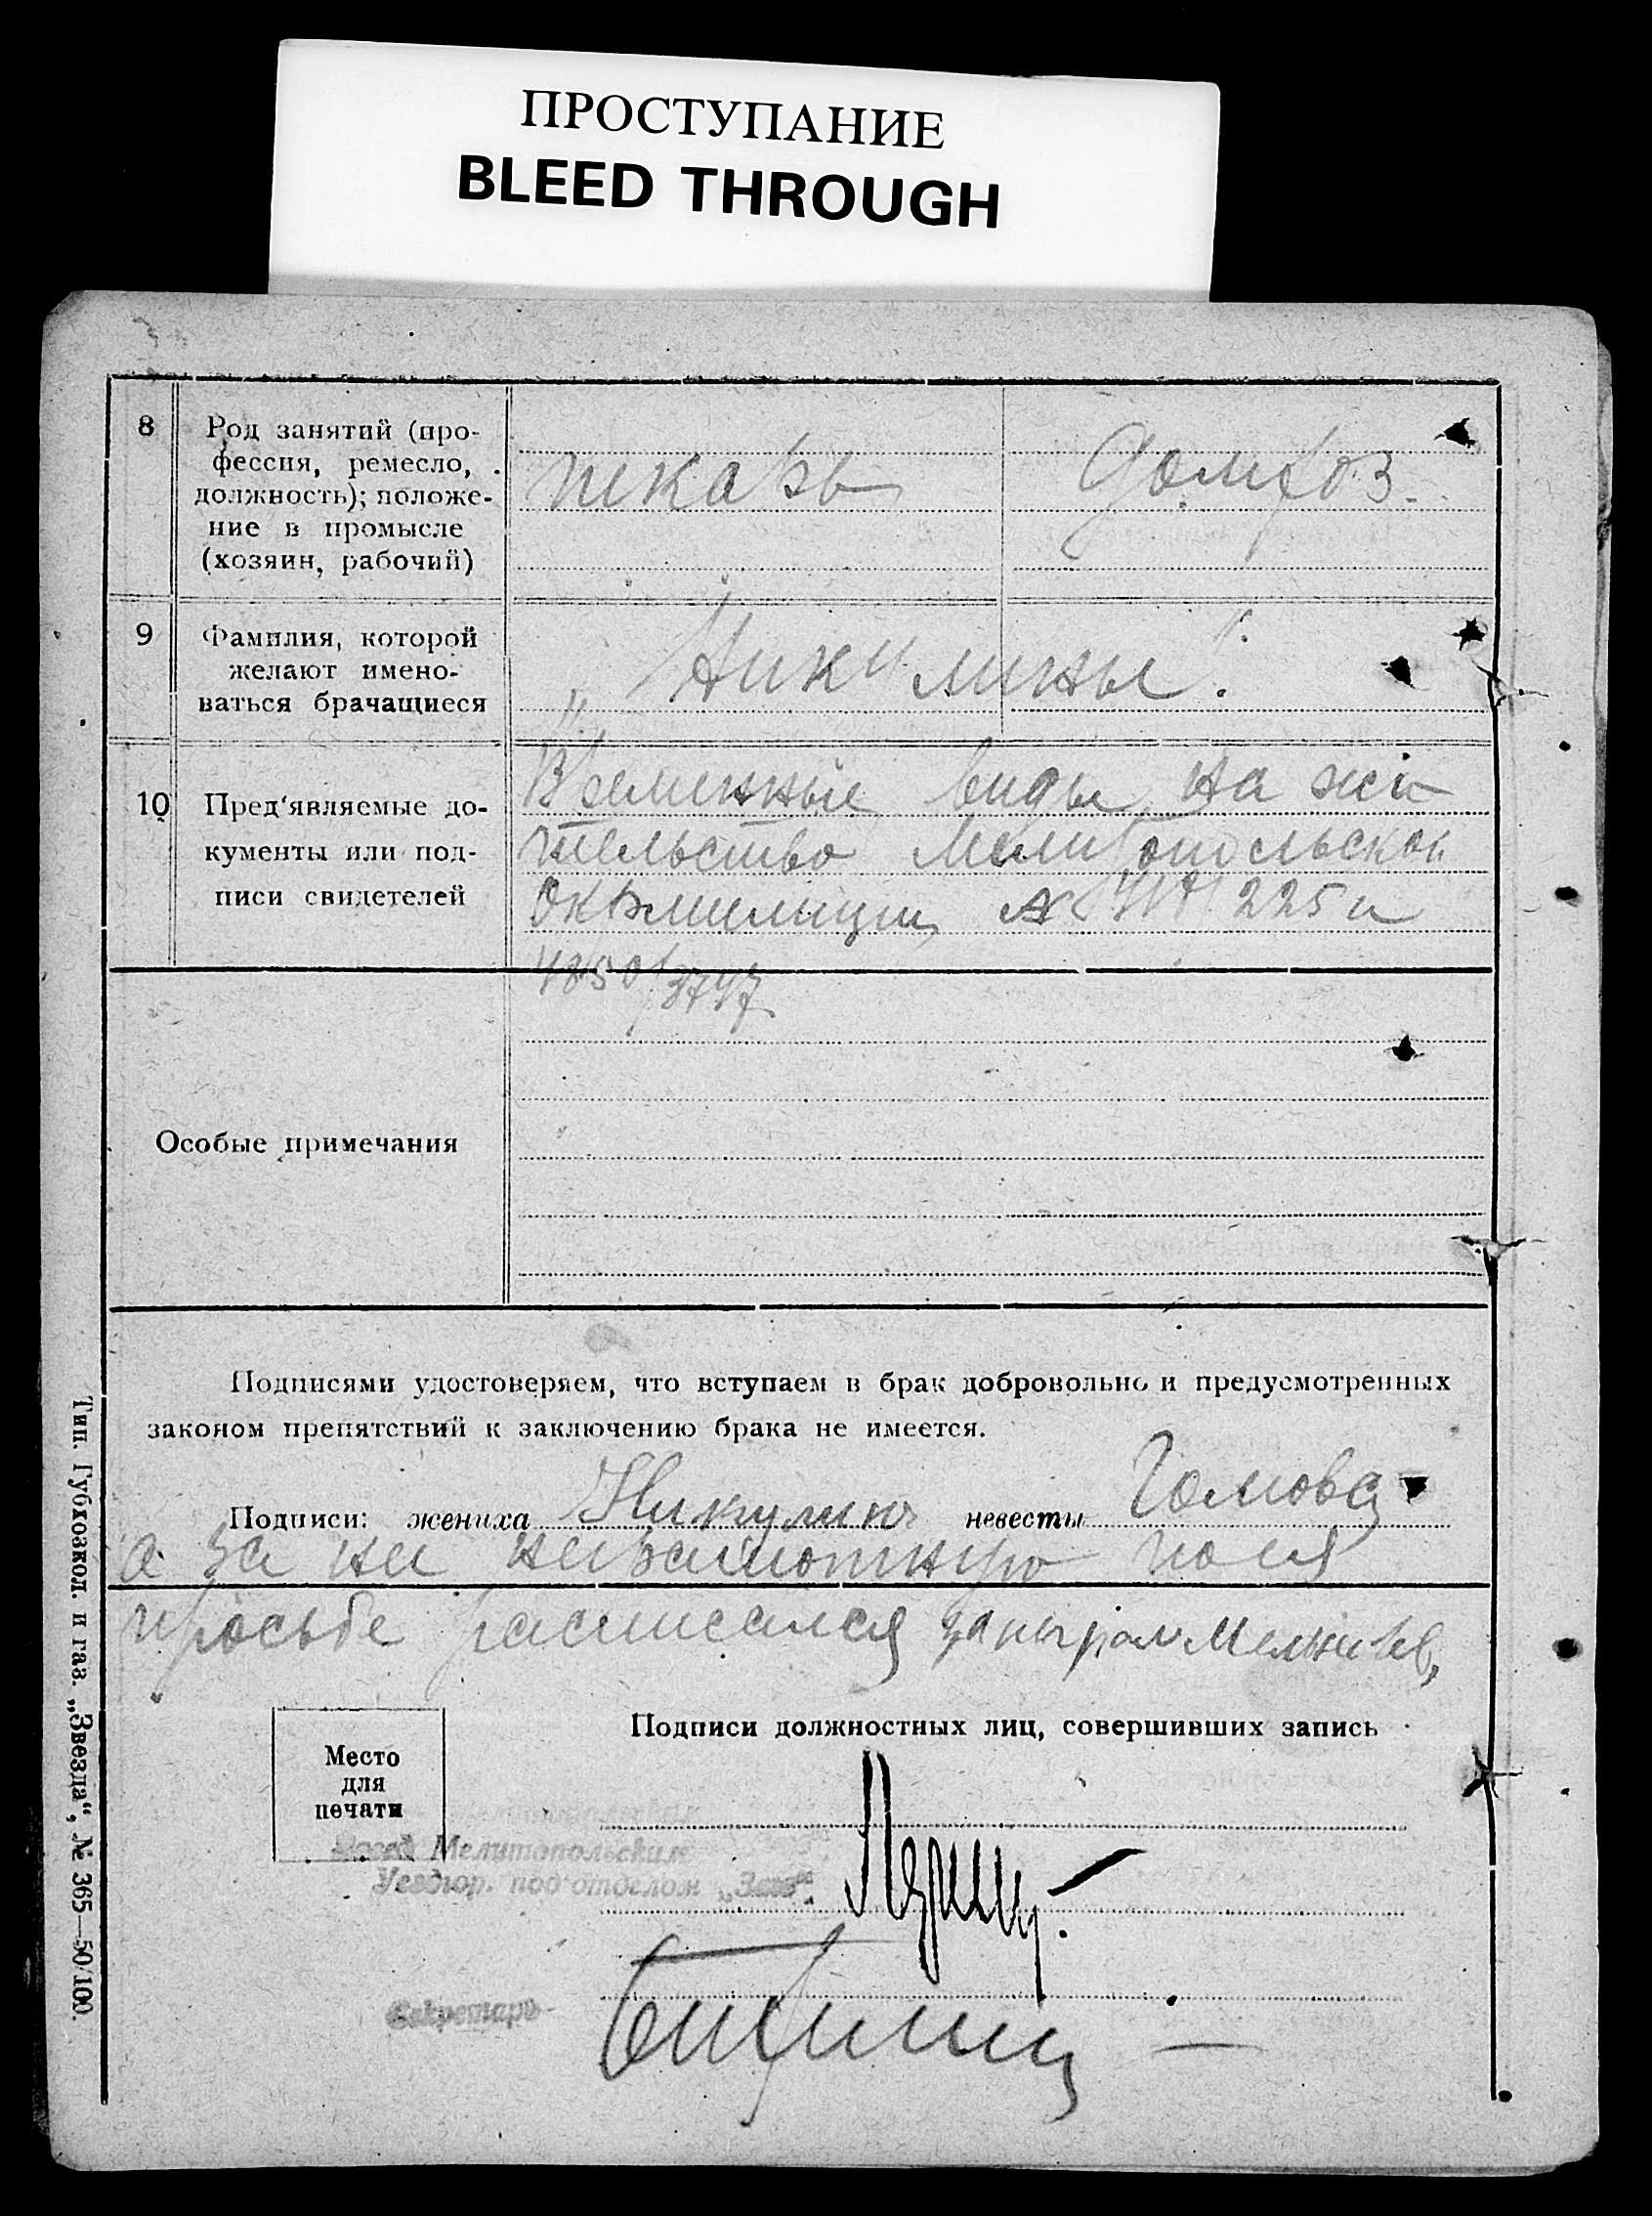 ПРОСТУПАНИЕ
BLEED THROUGH
8
Род занятий (про-
фессия, ремесло,
должность); положе-
ние в промысле
(хозяин, рабочий)
пекарь
домхоз.
9
Фамилия, которой
желают имено-
ваться брачащиеся
Никулины.
10
Пред'являемые до-
кументы или под-
писи свидетелей
Временные виды на жи
тельство Мелитопольской
Окрмилиции 225 и
4850/3747
Особые примечания
Подписями удостоверяем, что вступаем в брак добровольно и предусмотренных
законом препятствий к заключению брака не имеется.
Подписи: жениха Никулин невесты
а за не неграмотную по ея
просьбе расписался
Подписи должностных лиц, совершивших запись
Место
для
печати
Мелитопольским
Уездгор. под'отделом „Загс“.
Секретарь
Тип. Губкозкол. и газ. „Звезда“, № 365—50/100.